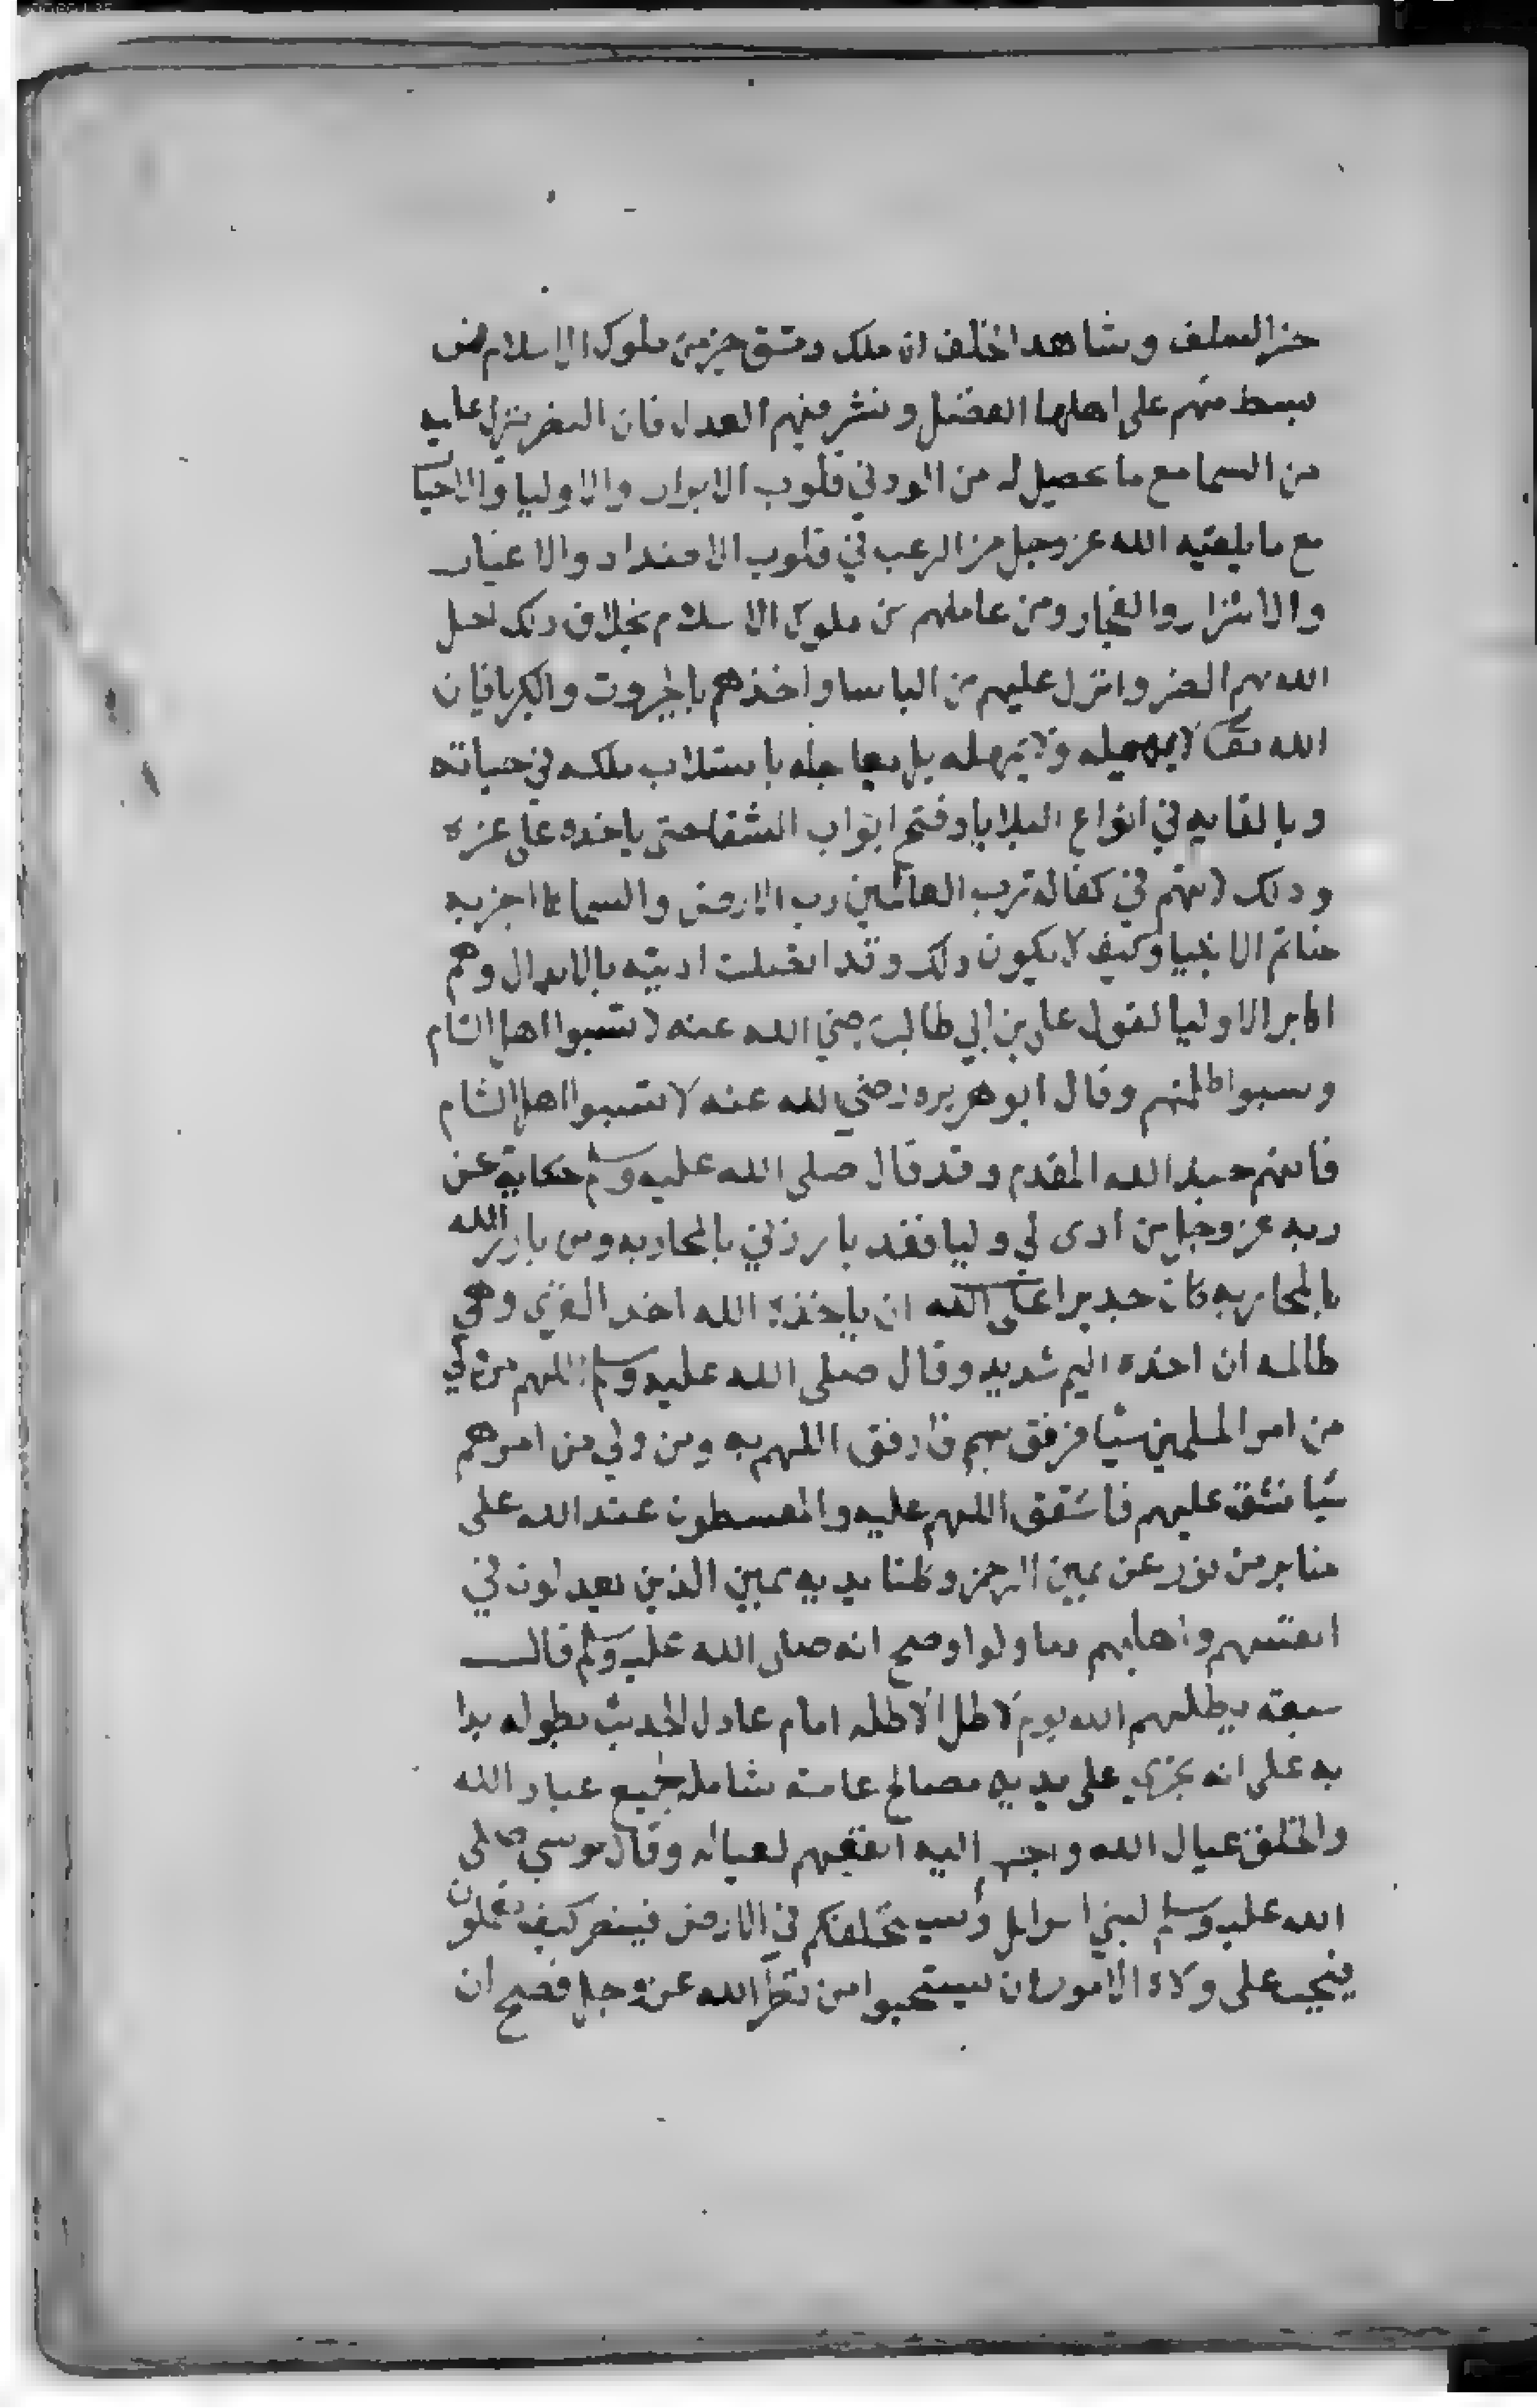 خبر السلف وشاهد الخلف ان ملك دمشق خير من ملوك الاسلام فمن
يبسط منهم على اهلها الفضل ونشر فيهم العدل فان النصر ينزل عليه
من السما مع ما يحصل له من الود في قلوب الابرار والاوليا والاخيا
مع ما يلقيه الله عز وجل من الرعب في قلوب الاضداد والاغيار
والاشرار والفجار ومن عاملهم من ملوك الاسلام بخلاف ذلك احل
الله بهم الضر وانزل عليهم من الباسا واخذهم بالجبروت والكبريا فان
الله تعالى لا يهمله ولا يمهله بل يعاجله باستلاب ملكه في حياته
وبالقايه في انواع البلايا وفتح ابواب الشقا حتى ياخذه على غره
وذلك لانهم في كفالة رب العالمين رب الارض والسما بما اخبر به
خاتم الانبيا وكيف لا يكون ذلك وقد اتصلت اذيته بالابدال وهم
اكابر الاوليا لقول علي بن ابي طالب رضي الله عنه لا تسبوا اهل الشام
وسبوا ظلمتهم وقال ابو هريره رضي الله عنه لا تسبوا اهل الشام
فانهم جند الله المقدم وقد قال صلى الله عليه وسلم حكاية عن
ربه عز وجل من اذى لي وليا فقد بارزني بالمحاربه ومن بارز الله
بالمحاربه كان جديرا على الله ان ياخذه الله اخذ القرى وهي
ظالمه ان اخذه اليم شديد وقال صلى الله عليه وسلم اللهم من ولي
من امر المسلمين شيا فرفق بهم فارفق اللهم به ومن ولي من امرهم
شيا فشق عليهم فاشقق اللهم عليه والمقسطون عند الله على
منابر من نور عن يمين الرحمن وكلتا يديه يمين الذين يعدلون في
انفسهم واهليهم وما ولوا وصح انه صلى الله عليه وسلم قال
سبعة يظلهم الله يوم لا ظل الا ظله امام عادل الحديث بطوله بدا
به على انه يجري على يديه مصالح عامة شاملة لجميع عباد الله
والخلق عيال الله واحبهم اليه انفعهم لعياله وقال موسى صلى
الله عليه وسلم لبني اسرايل ويستخلفكم في الارض فينظر كيف تعملون
فيجب على ولاة الامور ان يستحيوا من نظر الله عز وجل فصح ان